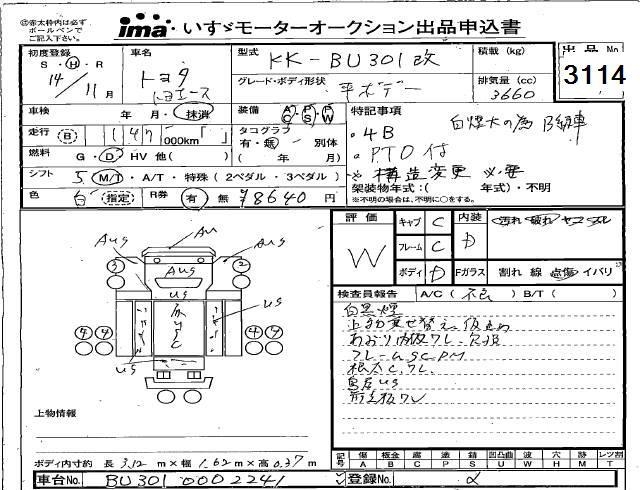 ㊟赤太枠内は必ず
ボールペンで
ご記入下さい。
ima・いすゞモーターオークション出品申込書
初度登録
S・H・R
14年11月
車名
トヨタ
トヨエース
型式
KK-BU301改
グレード・ボディ形状
平ボデー
積載 (kg)
排気量 (cc)
3660
出品 No
3114
車検 年・月・抹消
装備 AC PS PW
特記事項
白煙大の為
・4B
・PTO付
※構造変更 必要
走行 B 147 000km
タコグラフ
有・無・別体
( 年 月)
燃料 G・D・HV 他( )
シフト 5 M/T・A/T・特殊 (2ペダル・3ペダル)
架装物年式:( 年式)・不明
※不明の場合は、不明に○をする。
色 白 指定 R券 有 無 ¥8640円
評価
W
キャブ C
フレーム C
ボディ D
内装 D
汚れ 破れ ヤニ
Fガラス 割れ 線 点傷 イバリ
検査員報告 A/C( 不良 ) B/T( )
白黒煙
上物乗せ替え
あおり内板ワレ、欠損
フレームSC PM
根太C,ワレ
鳥居US
前立板ワレ
AUS
AU
AUS
AUS
US
US
US
3
2
4 4
4 4
上物情報
ボディ内寸約 長 3.12 m×幅 1.62 m×高 0.37 m
記号 傷 板金 腐 塗 錆 凹凸曲 波 穴 时 レツ割
A B C P S U W H M T
車台No. BU301 0002241
登録No.